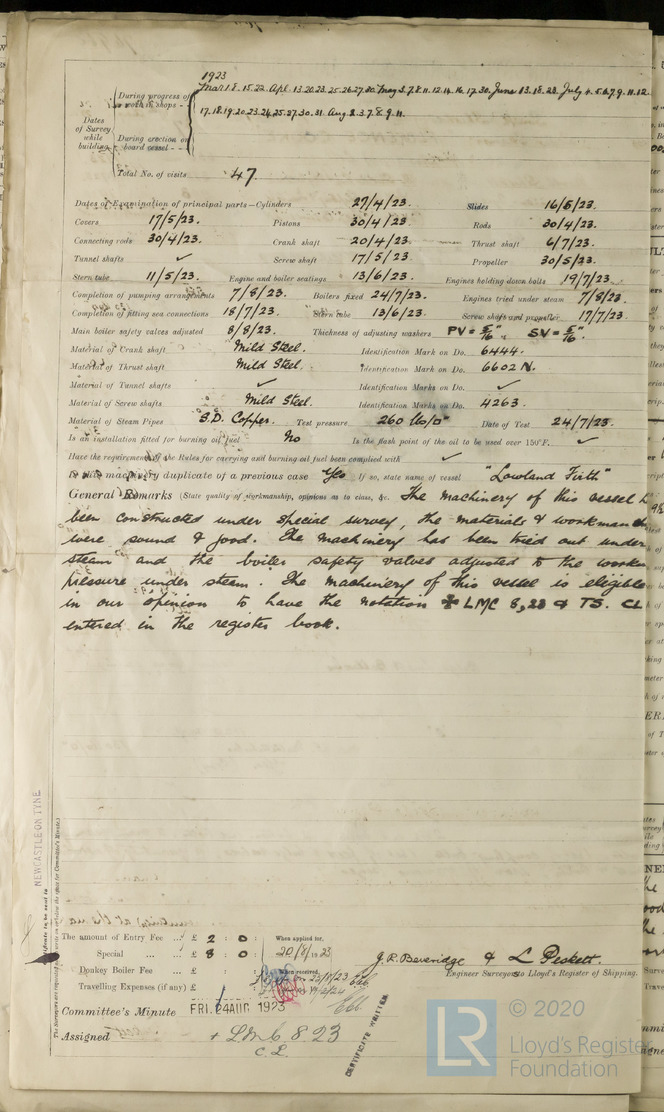 1923
During progress of work in shops - -
Mar 1.8.15.22 Apl. 13.20.23.25.26.27.30. May 3.7.8.11.12.14.16.17.30. June 13.18.28. July 4.5.6.7.9.11.12.
17.18.19.20.23.24.25.27.30.31. Aug 2.3.7.8.9.11.
Dates of Survey while building
During erection on board vessel - - -
Total No. of visits 47.
Dates of Examination of principal parts—Cylinders 27/4/23. Slides 16/5/23.
Covers 17/5/23. Pistons 30/4/23. Rods 30/4/23.
Connecting rods 30/4/23. Crank shaft 20/4/23. Thrust shaft 6/7/23.
Tunnel shafts ✓ Screw shaft 17/5/23 Propeller 30/5/23.
Stern tube 11/5/23. Engine and boiler seatings 13/6/23. Engines holding down bolts 19/7/23.
Completion of pumping arrangements 7/8/23. Boilers fixed 24/7/23. Engines tried under steam 7/8/23.
Completion of fitting sea connections 18/7/23. Stern tube 13/6/23. Screw shaft and propeller 17/7/23.
Main boiler safety valves adjusted 8/8/23. Thickness of adjusting washers PV = 5/16" SV = 5/16".
Material of Crank shaft Mild Steel. Identification Mark on Do. 6444.
Material of Thrust shaft Mild Steel. Identification Mark on Do. 6602 N.
Material of Tunnel shafts ✓ Identification Marks on Do. ✓
Material of Screw shafts Mild Steel. Identification Marks on Do. 4263.
Material of Steam Pipes S.D. Copper. Test pressure 260 lbs/□" Date of Test 24/7/23.
Is an installation fitted for burning oil fuel No Is the flash point of the oil to be used over 150°F. ✓
Have the requirements of the Rules for carrying and burning oil fuel been complied with ✓
Is this machinery duplicate of a previous case Yes If so, state name of vessel "Lowland Firth"
General Remarks (State quality of workmanship, opinions as to class, &c. The machinery of this vessel h
been constructed under special survey, the materials & workmansh
were sound & good. The machinery has been tried out under
steam and the boiler safety valves adjusted to the workin
pressure under steam. The machinery of this vessel is eligible
in our opinion to have the notation ✠ LMC 8,23 & TS. CL
entered in the register book.
NEWCASTLE-ON-TYNE.
The amount of Entry Fee ... £ 2 : 0 : When applied for,
Special ... £ 8 : 0 : 20/8/1923
Donkey Boiler Fee ... £ : : When received,
Travelling Expenses (if any) £ : :
J.R. Beveridge & L Peskett.
Engineer Surveyors to Lloyd's Register of Shipping.
Committee's Minute FRI. 24 AUG 1923
Assigned + LMC 8.23
C.L.
CERTIFICATE WRITTEN
LR
© 2020
Lloyd's Register
Foundation